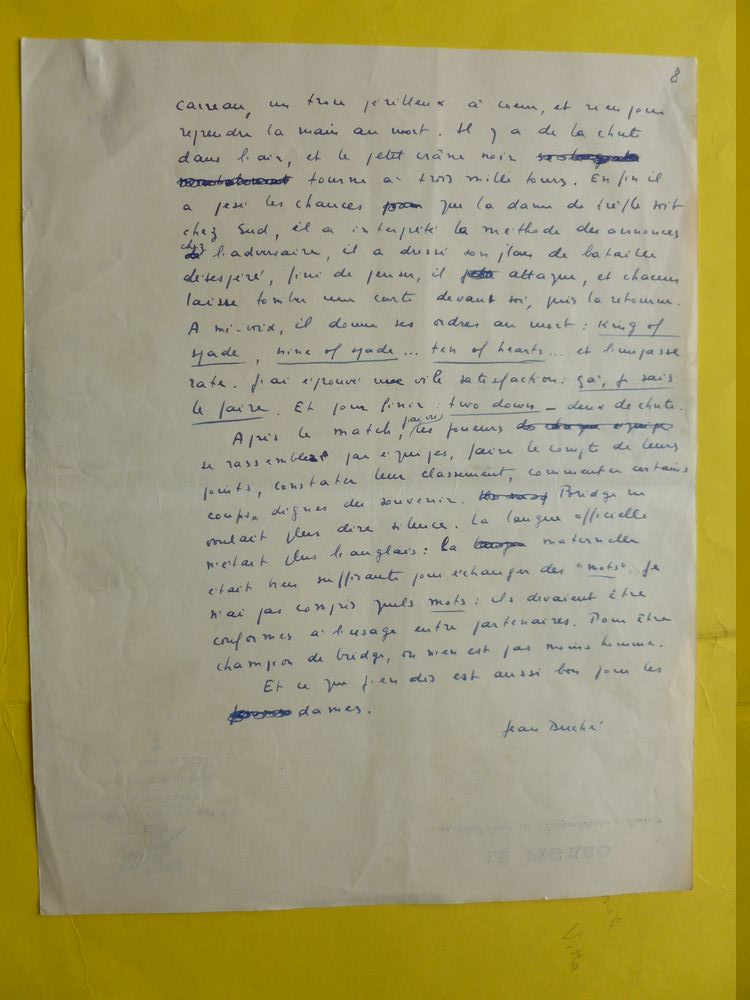 8
carreau, un trou périlleux à coeur, et rien pour
reprendre la main au mort. Il y a de la chute
dans l'air, et le petit crâne noir
tourne à trois mille tours. Enfin il
a pesé les chances que la dame de trèfle soit
chez Sud, il a interprété la méthode des annonces
chez l'adversaire, il a dressé son plan de bataille
désespéré, fini de penser, il attaque, et chacun
laisse tomber une carte devant soi, puis la retourne.
A mi-voix, il donne ses ordres au mort : King of
spade, nine of spade... ten of hearts... et l'impasse
rate. J'ai éprouvé une vile satisfaction : ça, je sais
le faire. Et pour finir : two down – deux de chute.
Après le match, j'ai vu les joueurs
se rassembler par équipes, faire le compte de leurs
points, constater leur classement, commenter certains
coups dignes du souvenir. Bridge ne
voulait plus dire silence. La langue officielle
n'était plus l'anglais : la maternelle
était bien suffisante pour échanger des "mots". Je
n'ai pas compris quels mots : ils devaient être
conformes à l'usage entre partenaires. Pour être
champion de bridge, on n'en est pas moins homme.
Et ce que j'en dis est aussi bon pour les
dames.
Jean Duché
LE FIGARO